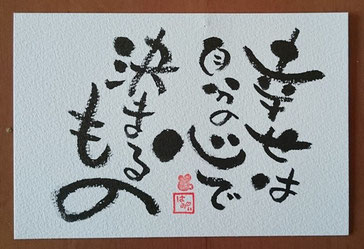 幸せは
自分の心で
決まる
もの